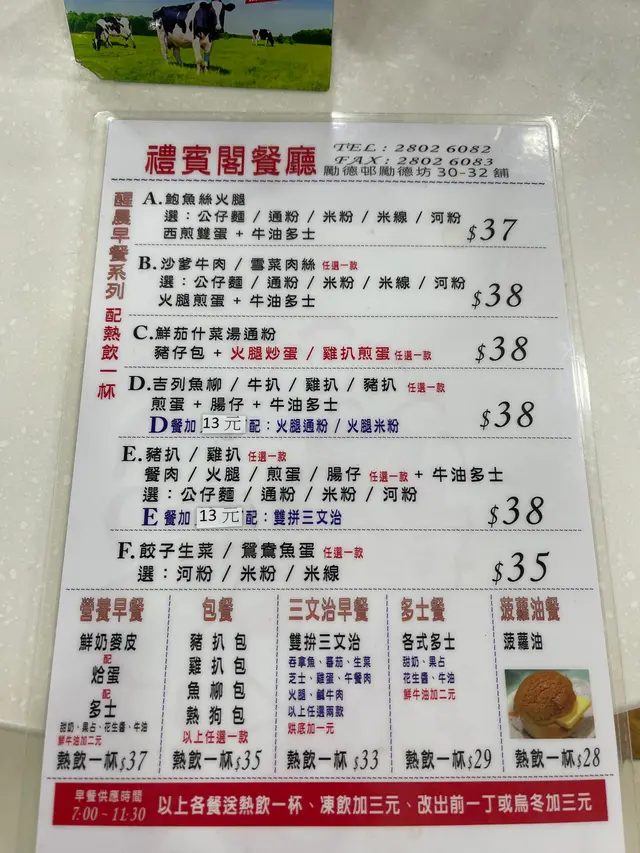 禮賓閣餐廳
TEL : 2802 6082
FAX : 2802 6083
勵德邨勵德坊 30-32 舖
醒晨早餐系列 配熱飲一杯
A. 鮑魚絲火腿
選 : 公仔麵 / 通粉 / 米粉 / 米線 / 河粉
西煎雙蛋 + 牛油多士 $37
B. 沙爹牛肉 / 雪菜肉絲 任選一款
選 : 公仔麵 / 通粉 / 米粉 / 米線 / 河粉
火腿煎蛋 + 牛油多士 $38
C. 鮮茄什菜湯通粉
豬仔包 + 火腿炒蛋 / 雞扒煎蛋 任選一款 $38
D. 吉列魚柳 / 牛扒 / 雞扒 / 豬扒 任選一款
煎蛋 + 腸仔 + 牛油多士 $38
D餐加 13 元 配 : 火腿通粉 / 火腿米粉
E. 豬扒 / 雞扒 任選一款
餐肉 / 火腿 / 煎蛋 / 腸仔 任選一款 + 牛油多士
選 : 公仔麵 / 通粉 / 米粉 / 河粉
E 餐加 13 元 配 : 雙拼三文治 $38
F. 餃子生菜 / 鴛鴦魚蛋 任選一款
選 : 河粉 / 米粉 / 米線 $35
營養早餐
鮮奶麥皮
配
烚蛋
配
多士
甜奶、果占、花生醬、牛油
鮮牛油加二元
熱飲一杯$37
包餐
豬扒包
雞扒包
魚柳包
熱狗包
以上任選一款
熱飲一杯$35
三文治早餐
雙拼三文治
吞拿魚、蕃茄、生菜
芝士、雞蛋、午餐肉
火腿、鹹牛肉
以上任選兩款
烘底加一元
熱飲一杯 $33
多士餐
各式多士
甜奶、果占
花生醬、牛油
鮮牛油加二元
熱飲一杯$29
菠蘿油餐
菠蘿油
熱飲一杯$28
早餐供應時間
7:00~11:30
以上各餐送熱飲一杯、凍飲加三元、改出前一丁或烏冬加三元